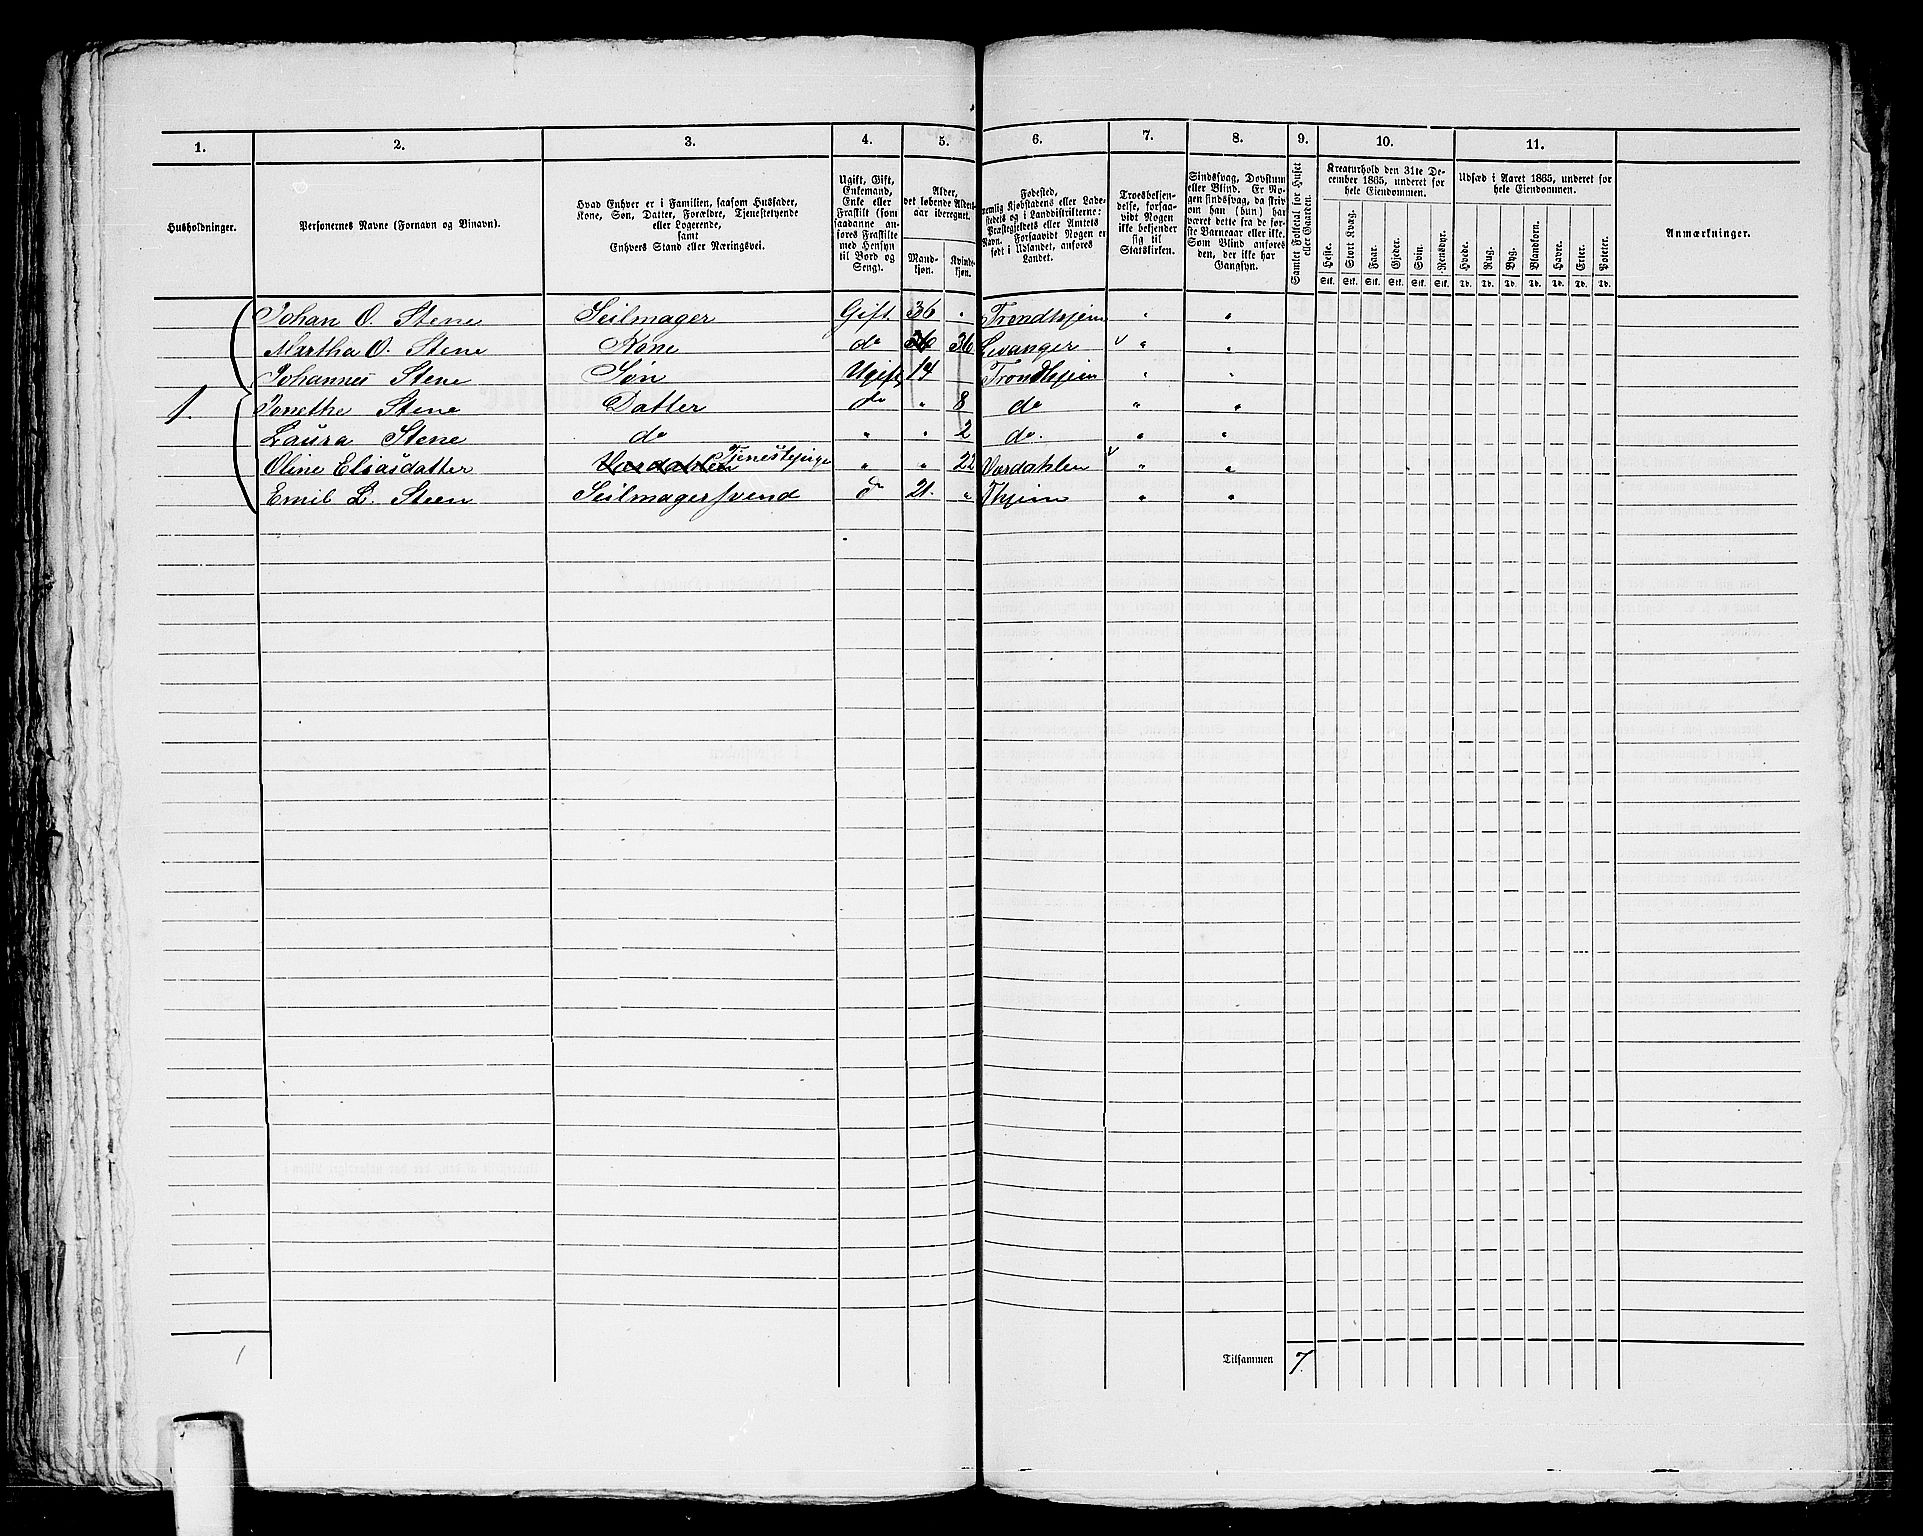 1. 2. 3. 4. 5. 6. 7. 8. 9. 10. 11.
Husholdninger.
Personernes Navne (Fornavn og Binavn).
Hvad Enhver er i Familien, saasom Husfader,
Kone, Søn, Datter, Forældre, Tjenestetyende
eller Logerende,
samt
Enhvers Stand eller Næringsvei.
Ugift, Gift,
Enkemand,
Enke eller
Fraskilt (som
saadanne an-
føres Fraskilte
med Hensyn
til Bord og
Seng).
Alder,
det løbende Alders-
aar iberegnet.
Mand-
kjøn.
Kvinde-
kjøn.
Fødested,
nemlig Kjøbstadens eller Lade-
stedets og i Landdistrikterne:
Præstegjeldets eller Amtets
Navn. Forsaavidt Nogen er
født i Udlandet, anføres
Landet.
Troesbekjen-
delse, forsaa-
vidt Nogen
ikke bekjender
sig til
Statskirken.
Sindssvag, Døvstum
eller Blind. Er No-
gen sindssvag, da skriv
om han (hun) har
været dette fra de før-
ste Barneaar eller ikke.
Som Blind anføres
den, der ikke har
Gangsyn.
Samlet Folketal for Huset
eller Gaarden.
Kreaturhold den 31te De-
cember 1865, underet for
hele Eiendommen.
Heste. Stort Kvæg. Faar. Gjeder. Svin. Rensdyr.
Stk. Stk. Stk. Stk. Stk. Stk.
Udsæd i Aaret 1865, underet for
hele Eiendommen.
Hvede. Rug. Byg. Blandkorn. Havre. Erter. Poteter.
Td. Td. Td. Td. Td. Td. Td.
Anmærkninger.
Johan O. Stene Seilmager Gift 36 " Trondhjem " "
Martha O. Stene Kone do 36 36 Levanger v " "
Johannes Stene Søn Ugift 14 Trondhjem " "
1. Jonethe Stene Datter do " 8 do " "
Laura Stene do " " 2 do. " "
Oline Eliasdatter Værdahlen Tjenestepige " " 22 Værdahlen v " "
Emil L. Steen Seilmagersvend do 21. " Thjem " "
1 Tilsammen 7.